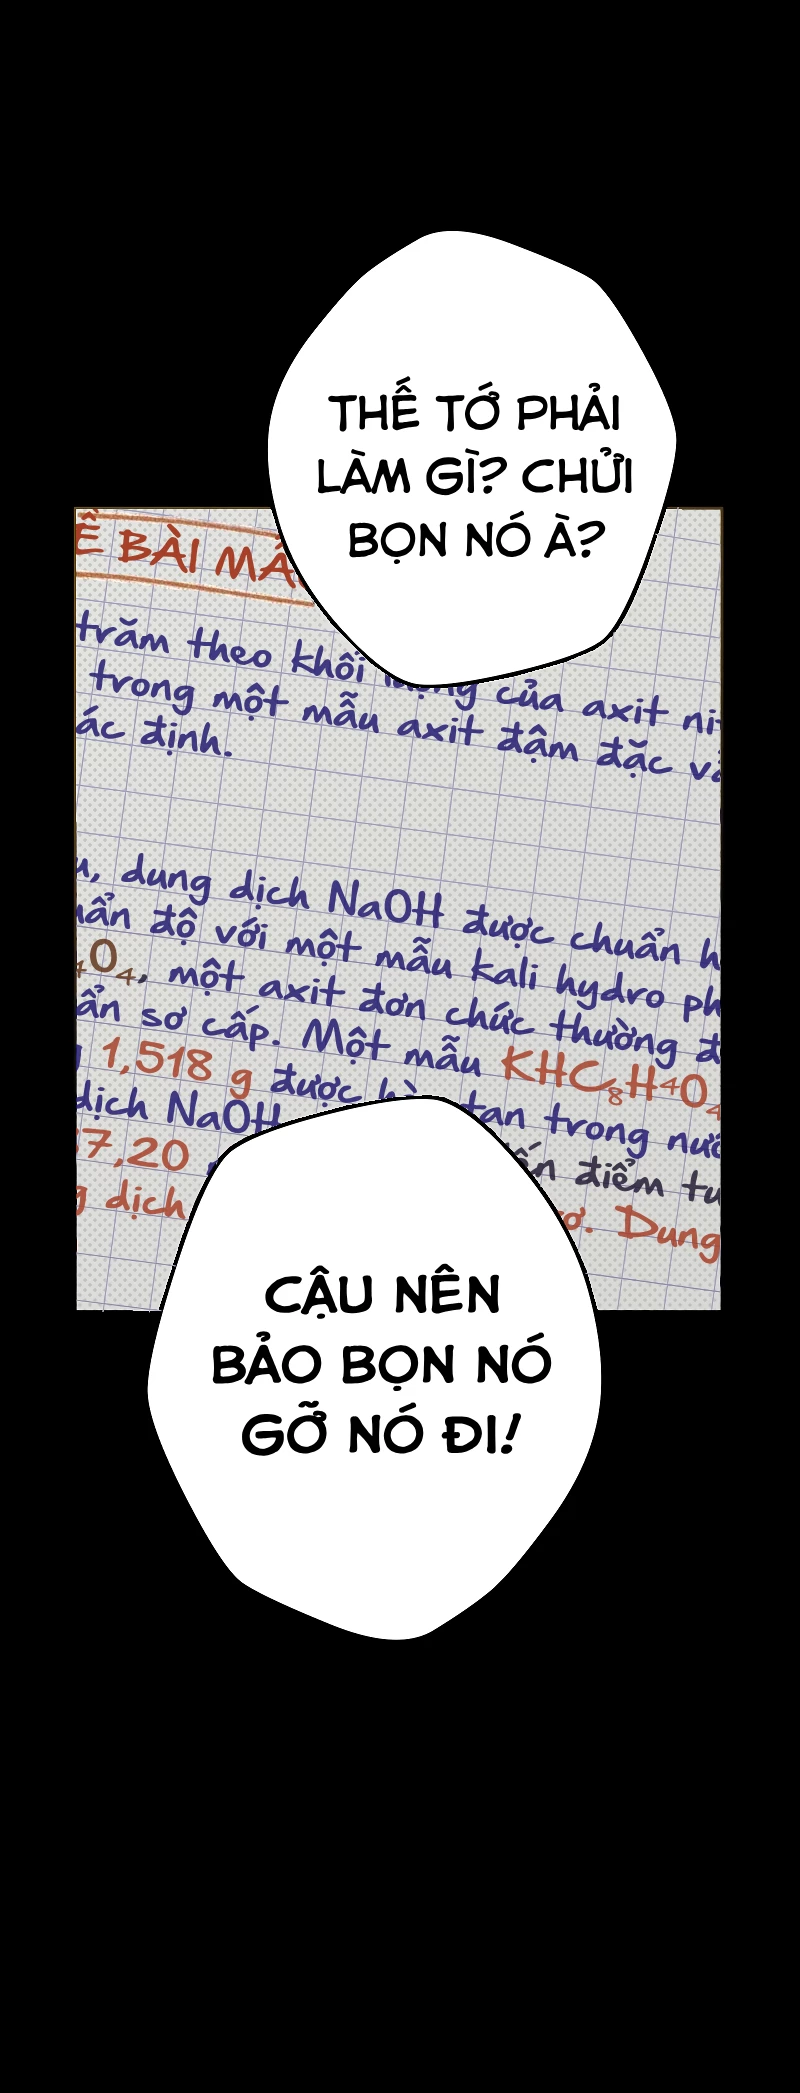 THẾ TỚ PHẢI
LÀM GÌ? CHỬI
BỌN NÓ À?
Ề BÀI MẪ
trăm theo khối lượng của axit ni
trong một mẫu axit đậm đặc v
ác định.
u, dung dịch NaOH được chuẩn h
uẩn độ với một mẫu kali hydro ph
₄O₄, một axit đơn chức thường đ
ẩn sơ cấp. Một mẫu KHC₈H⁴O₄
1,518 g được hòa tan trong nướ
dịch NaOH đến điểm tư
37,20
g dịch Dung
CẬU NÊN
BẢO BỌN NÓ
GỠ NÓ ĐI!